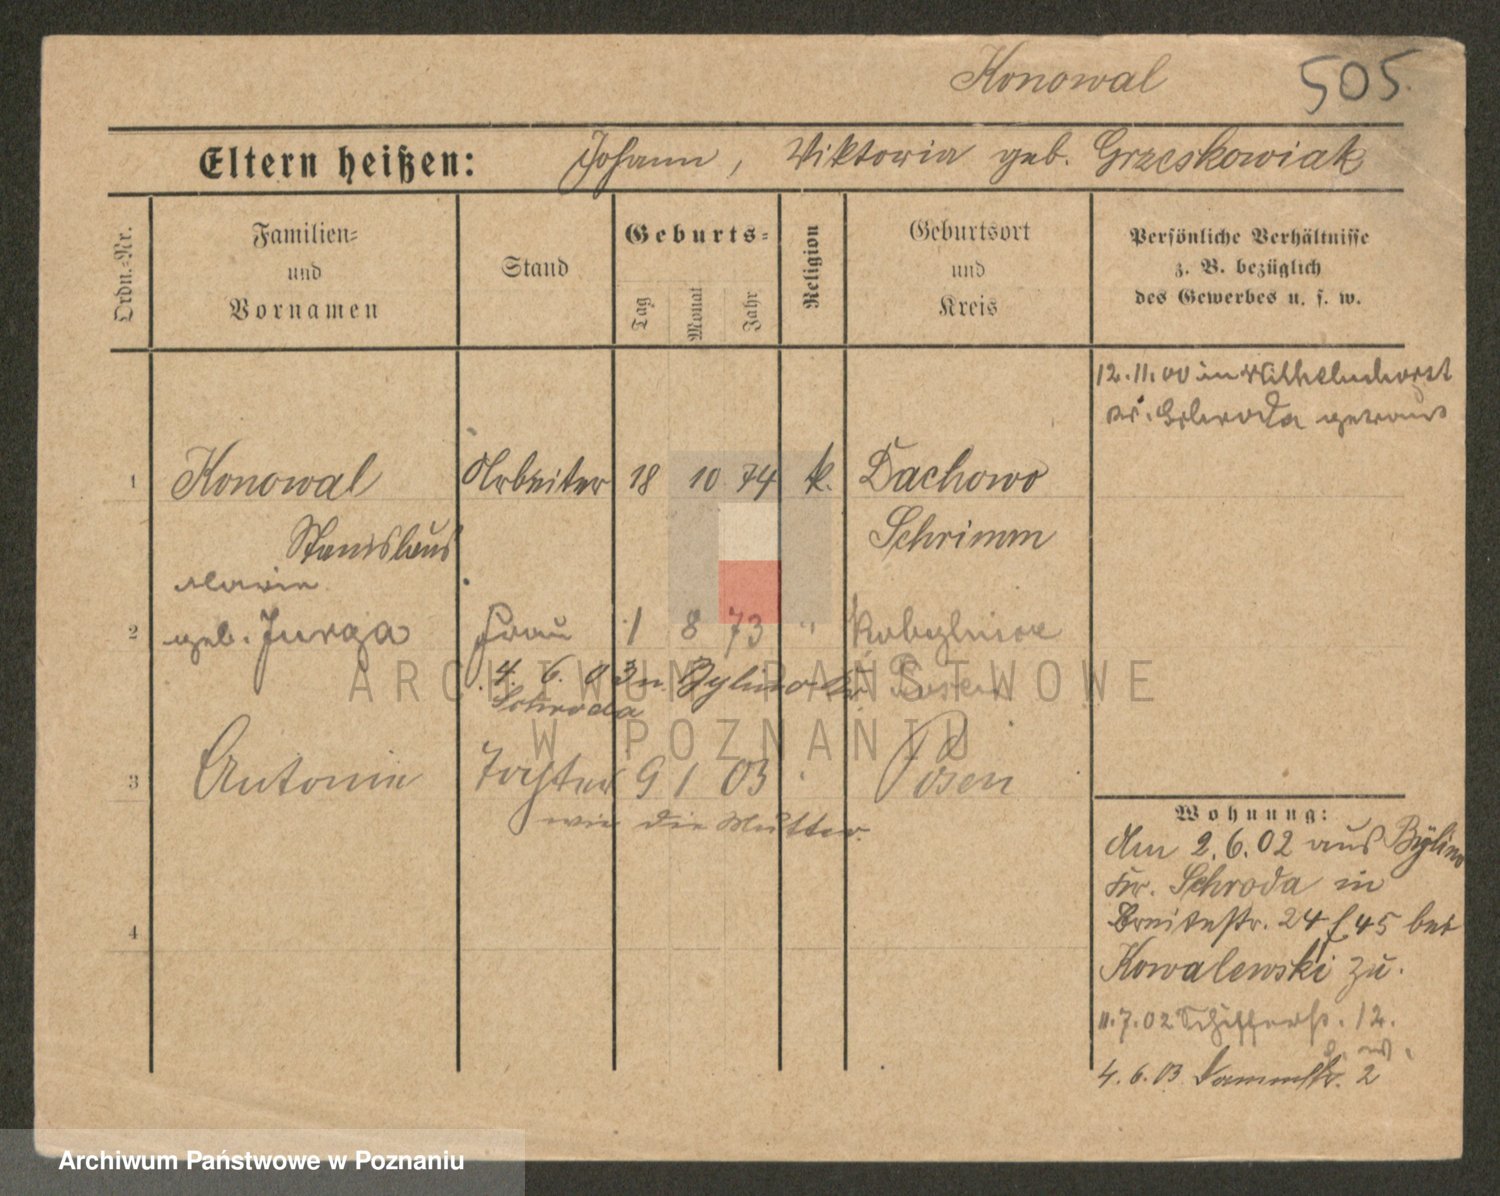 Konowal
505.
Eltern heißen: Johann, Viktoria geb. Grzeskowiak
Ordn.-Nr.
Familien-
und
Vornamen
Stand
Geburts-
Tag
Monat
Jahr
Religion
Geburtsort
und
Kreis
Persönliche Verhältnisse
z. B. bezüglich
des Gewerbes u. s. w.
12.11.00 in Wilhelmshorst
Kr. Schroda getraut
1 Konowal Arbeiter 18 10 74 k. Dachowo
Stanislaus Schrimm
Marie
2 geb. Jurga Frau 1 8 73 "
4. 6. 03 n. Bylino Kr. Posen
Schroda
3 Antonie Tochter 9 1 03 Posen
wie die Mutter.
4
Wohnung:
Am 2.6.02 aus Bylino
Kr. Schroda in
Breitestr. 24 bei
Kowalewski zu.
11.7.02 Schifferstr. 12.
4.6.03 Dammstr. 2
ARCHIWUM PAŃSTWOWE
W POZNANIU
Archiwum Państwowe w Poznaniu